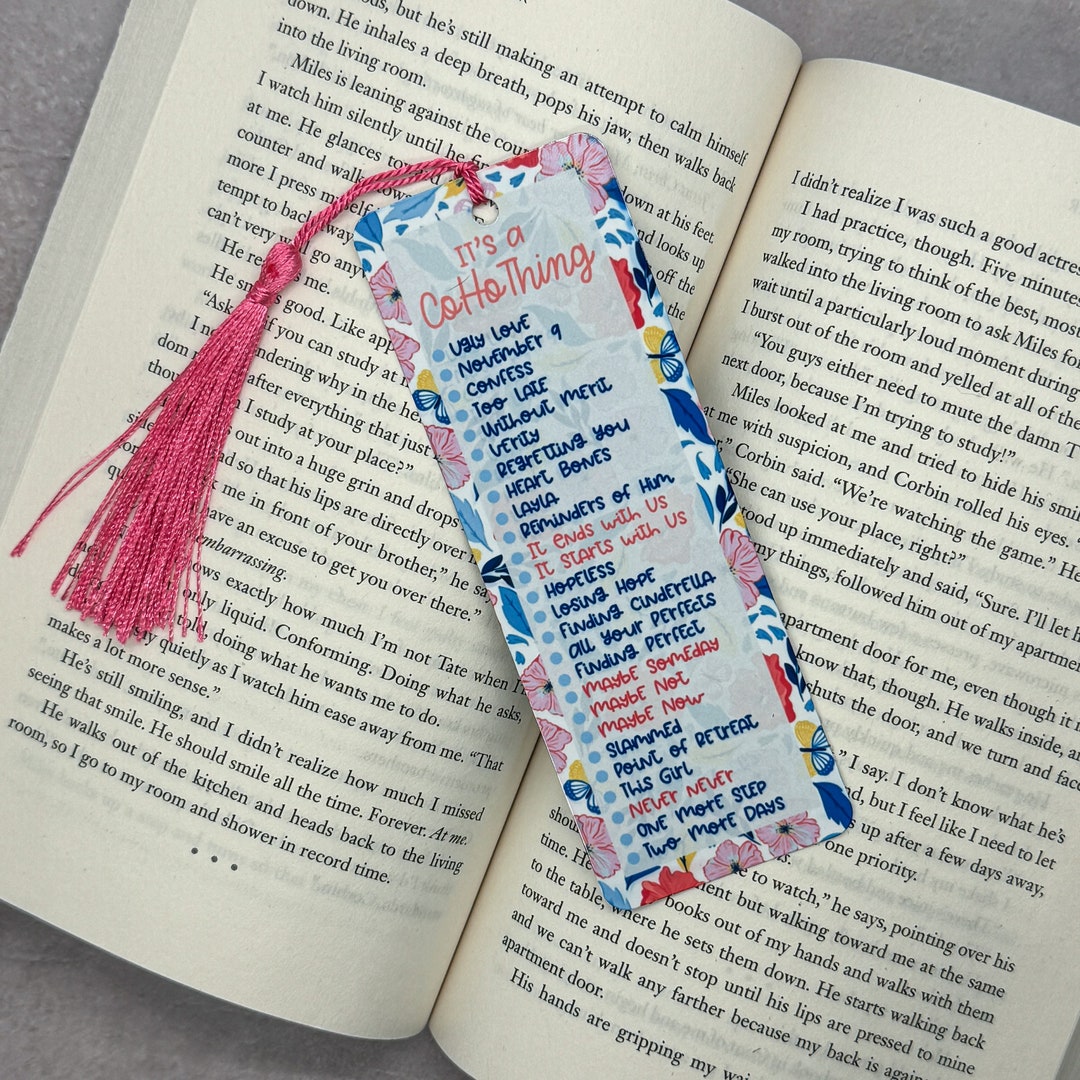 ous, but he’s still making an attempt to calm himself
down. He inhales a deep breath, pops his jaw, then walks back
into the living room.
Miles is leaning against the
I watch him silently until he
at me. He glances down at his feet
counter and looks up
more I press myself off the
tempt to back
can’t very well go any
He
He smells good. Like
“Ask if you can study at
I not wondering why in the
after everything that just
I study at your place?”
out into a huge grin and drops
so that his lips are directly over
me in front of your brother,” he
have an excuse to get you over there.”
embarrassing.
knows exactly how much I’m not Tate when
only liquid. Conforming. Doing what he asks,
told, doing what he wants me to do.
quietly as I watch him ease away from me. “That
makes a lot more sense.”
He’s still smiling, and I didn’t realize how much I missed
seeing that smile. He should smile all the time. Forever. At me.
He walks out of the kitchen and heads back to the living
room, so I go to my room and shower in record time.
• • •
It's a
CoHoThing
Ugly Love
November 9
Confess
Too Late
Without Merit
Verity
Regretting You
Heart Bones
Layla
Reminders of Him
It Ends with Us
It Starts with Us
Hopeless
Losing Hope
Finding Cinderella
All Your Perfects
Finding Perfect
Maybe Someday
Maybe Not
Maybe Now
Slammed
Point of Retreat
This Girl
Never Never
One More Step
Two More Days
I didn’t realize I was such a good actress
I had practice, though. Five minutes
my room, trying to think of the best, most
walked into the living room to ask Miles for
wait until a particularly loud moment during
I burst out of the room and yelled at all of the
“You guys either need to mute the damn T
next door, because I’m trying to study!”
Miles looked at me and tried to hide his smi
at me with suspicion, and Corbin rolled his eyes.
Corbin said. “We’re watching the game.” He
“She can use your place, right?”
stood up immediately and said, “Sure. I’ll let h
my things, followed him out of my apartm
apartment door for me, even though it
know that, though. He walks inside, a
shuts the door, and we turn and face
I say. I don’t know what he’s
but I feel like I need to let
up after a few days away,
one priority.
to watch,” he says, pointing over his
time. He
to the table, but walking toward me at the same
books out of my hands and walks with them
toward me and doesn’t stop until his lips are pressed to mine
where he sets them down. He starts walking back
and we can’t walk any farther because my back is again
apartment door.
His hands are gripping my